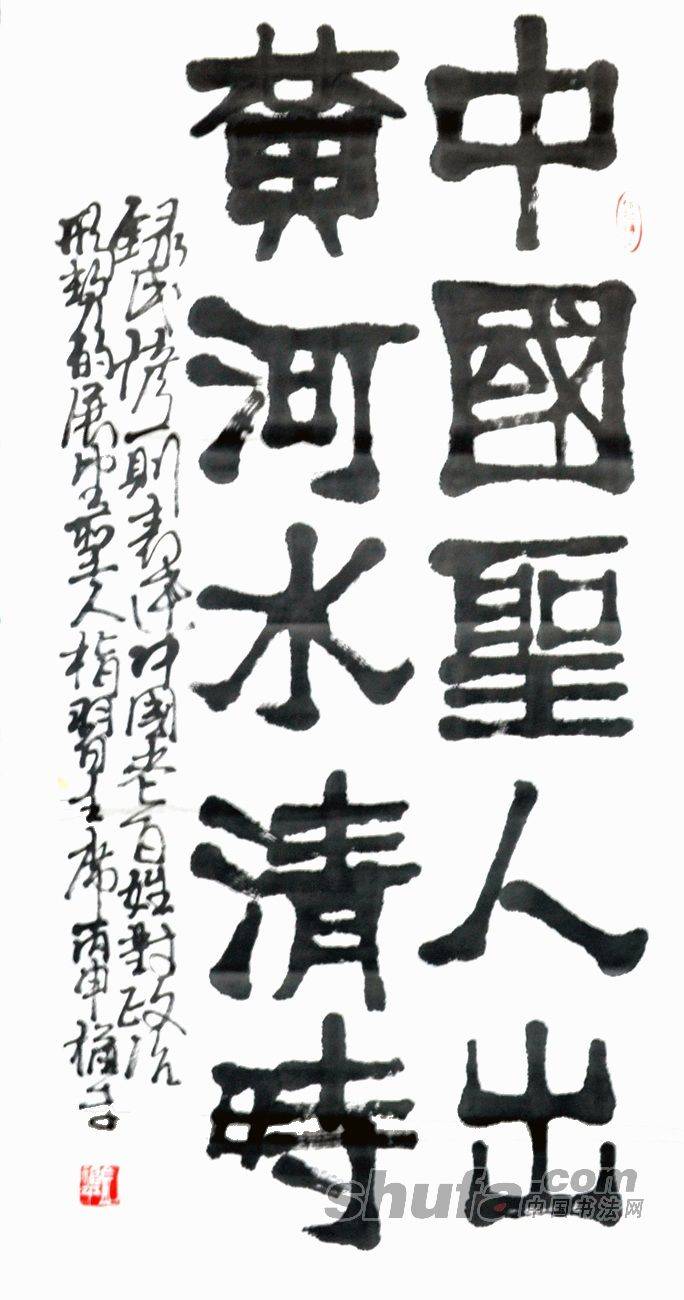 中國聖人出
黃河水清時
錄民情一則表達中國老百姓對政治
形勢的展望聖人指習主席丙申
shufa.com
中国书法网